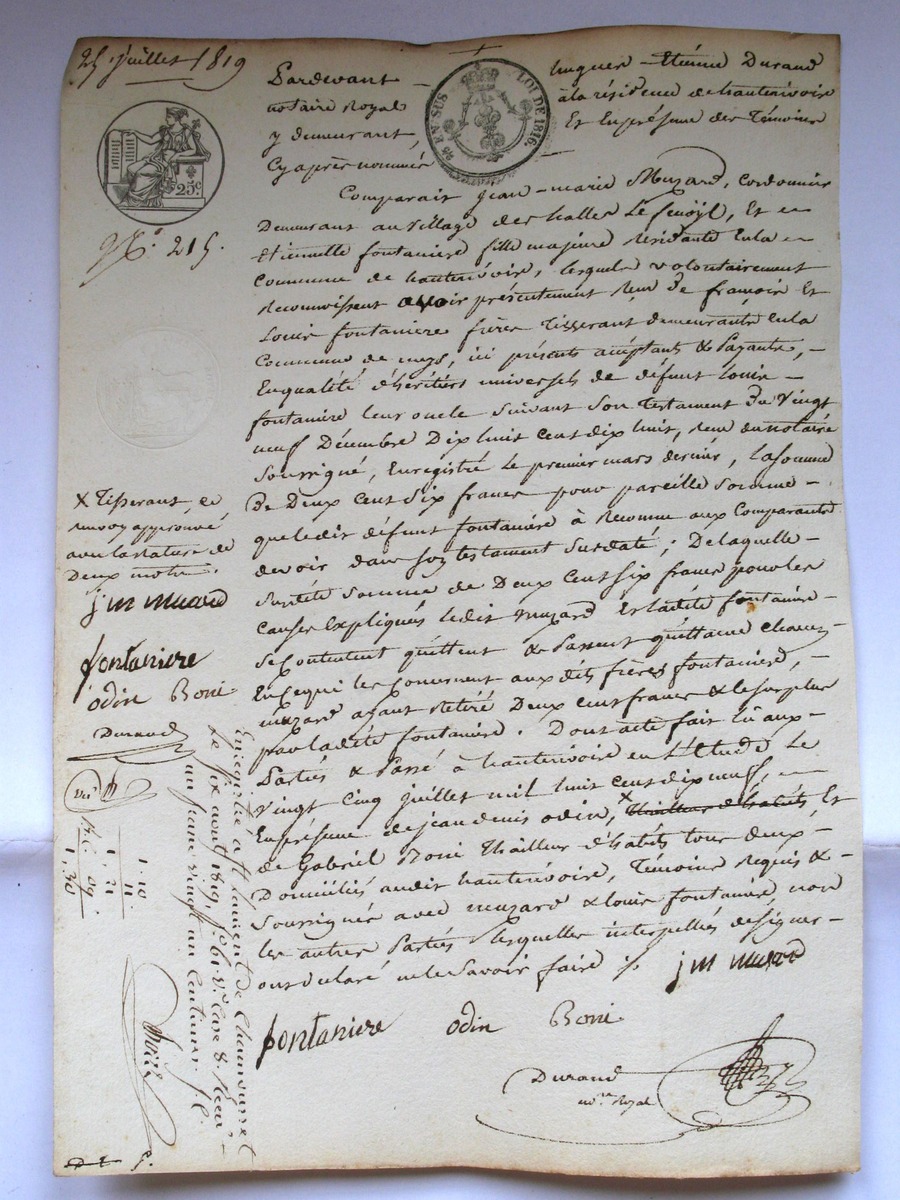 25 juillet 1819
Pardevant hugues Etiénne Durand
notaire Royal à la résidence de hauterivoire
y demeurant, Et En présence des Témoins
Cy après nommés
25 EN SUS LOI DE 1816
25c
N.o 215.
Comparait Jean-marie Muzard, Cordonnier
Demeurant au village des halles Le fenoÿl, Et
Etiennette fontaniere fille majeure résidante En la
Commune de hauterivoire, lesquels volontairement
Reconnoissent avoir présentement reçu De françois Et
Louis fontaniere frères Tisserant demeurants En la
Commune de meys, ici présents acéptants & Payants,
En qualité d'héritiers universels de défunt Louis
fontaniere leur oncle suivant son Testament Du Vingt
neuf Décembre Dix huit Cent dix huit, reçu du notaire
soussigné, Enregistré Le premier mars dernier, la somme
De Deux Cent Six francs pour pareille somme
que ledit défunt fontaniere à Reconnu aux Comparants
devoir dans son testament susdaté; De laquelle
susdite somme de Deux Cent Six francs pour les
Causes Expliqués ledit muzard Et ladite fontaniere
se Contentent quittent & Passent quittance chacun
En ce qui les Concernent aux dits frères fontaniere,
muzard ayant Retiré Deux cent francs & le surplus
par ladite fontaniere. Dont acte fait lû aux
Parties & Passé à hauterivoire en L'Etude Le
Vingt Cinq juillet mil huit Cent dix neuf,
En présence de jean denis odin, x Thailleur d'habits, Et
de Gabriel Boni Thailleur d'habits tous deux
Domiciliés audit hauterivoire, Témoins Requis &
soussignés avec muzard & louis fontaniere, non
les autres Parties lesquelles interpellés de signer
ont déclaré ne le savoir faire ./.
j m musard
fontaniere odin Boni
Durand
no.re Royal
x Tisserant, ce
renvoy approuvé
avec la rature de
Deux mots.
j m musard
fontaniere
odin Boni
Durand
Enregistré à St Laurent de Chamousset
le six aout 1819, f.o 61 V.o Case 8. Reçu
un franc vingt un Centimes
1,10
11
1,21
09
1,30